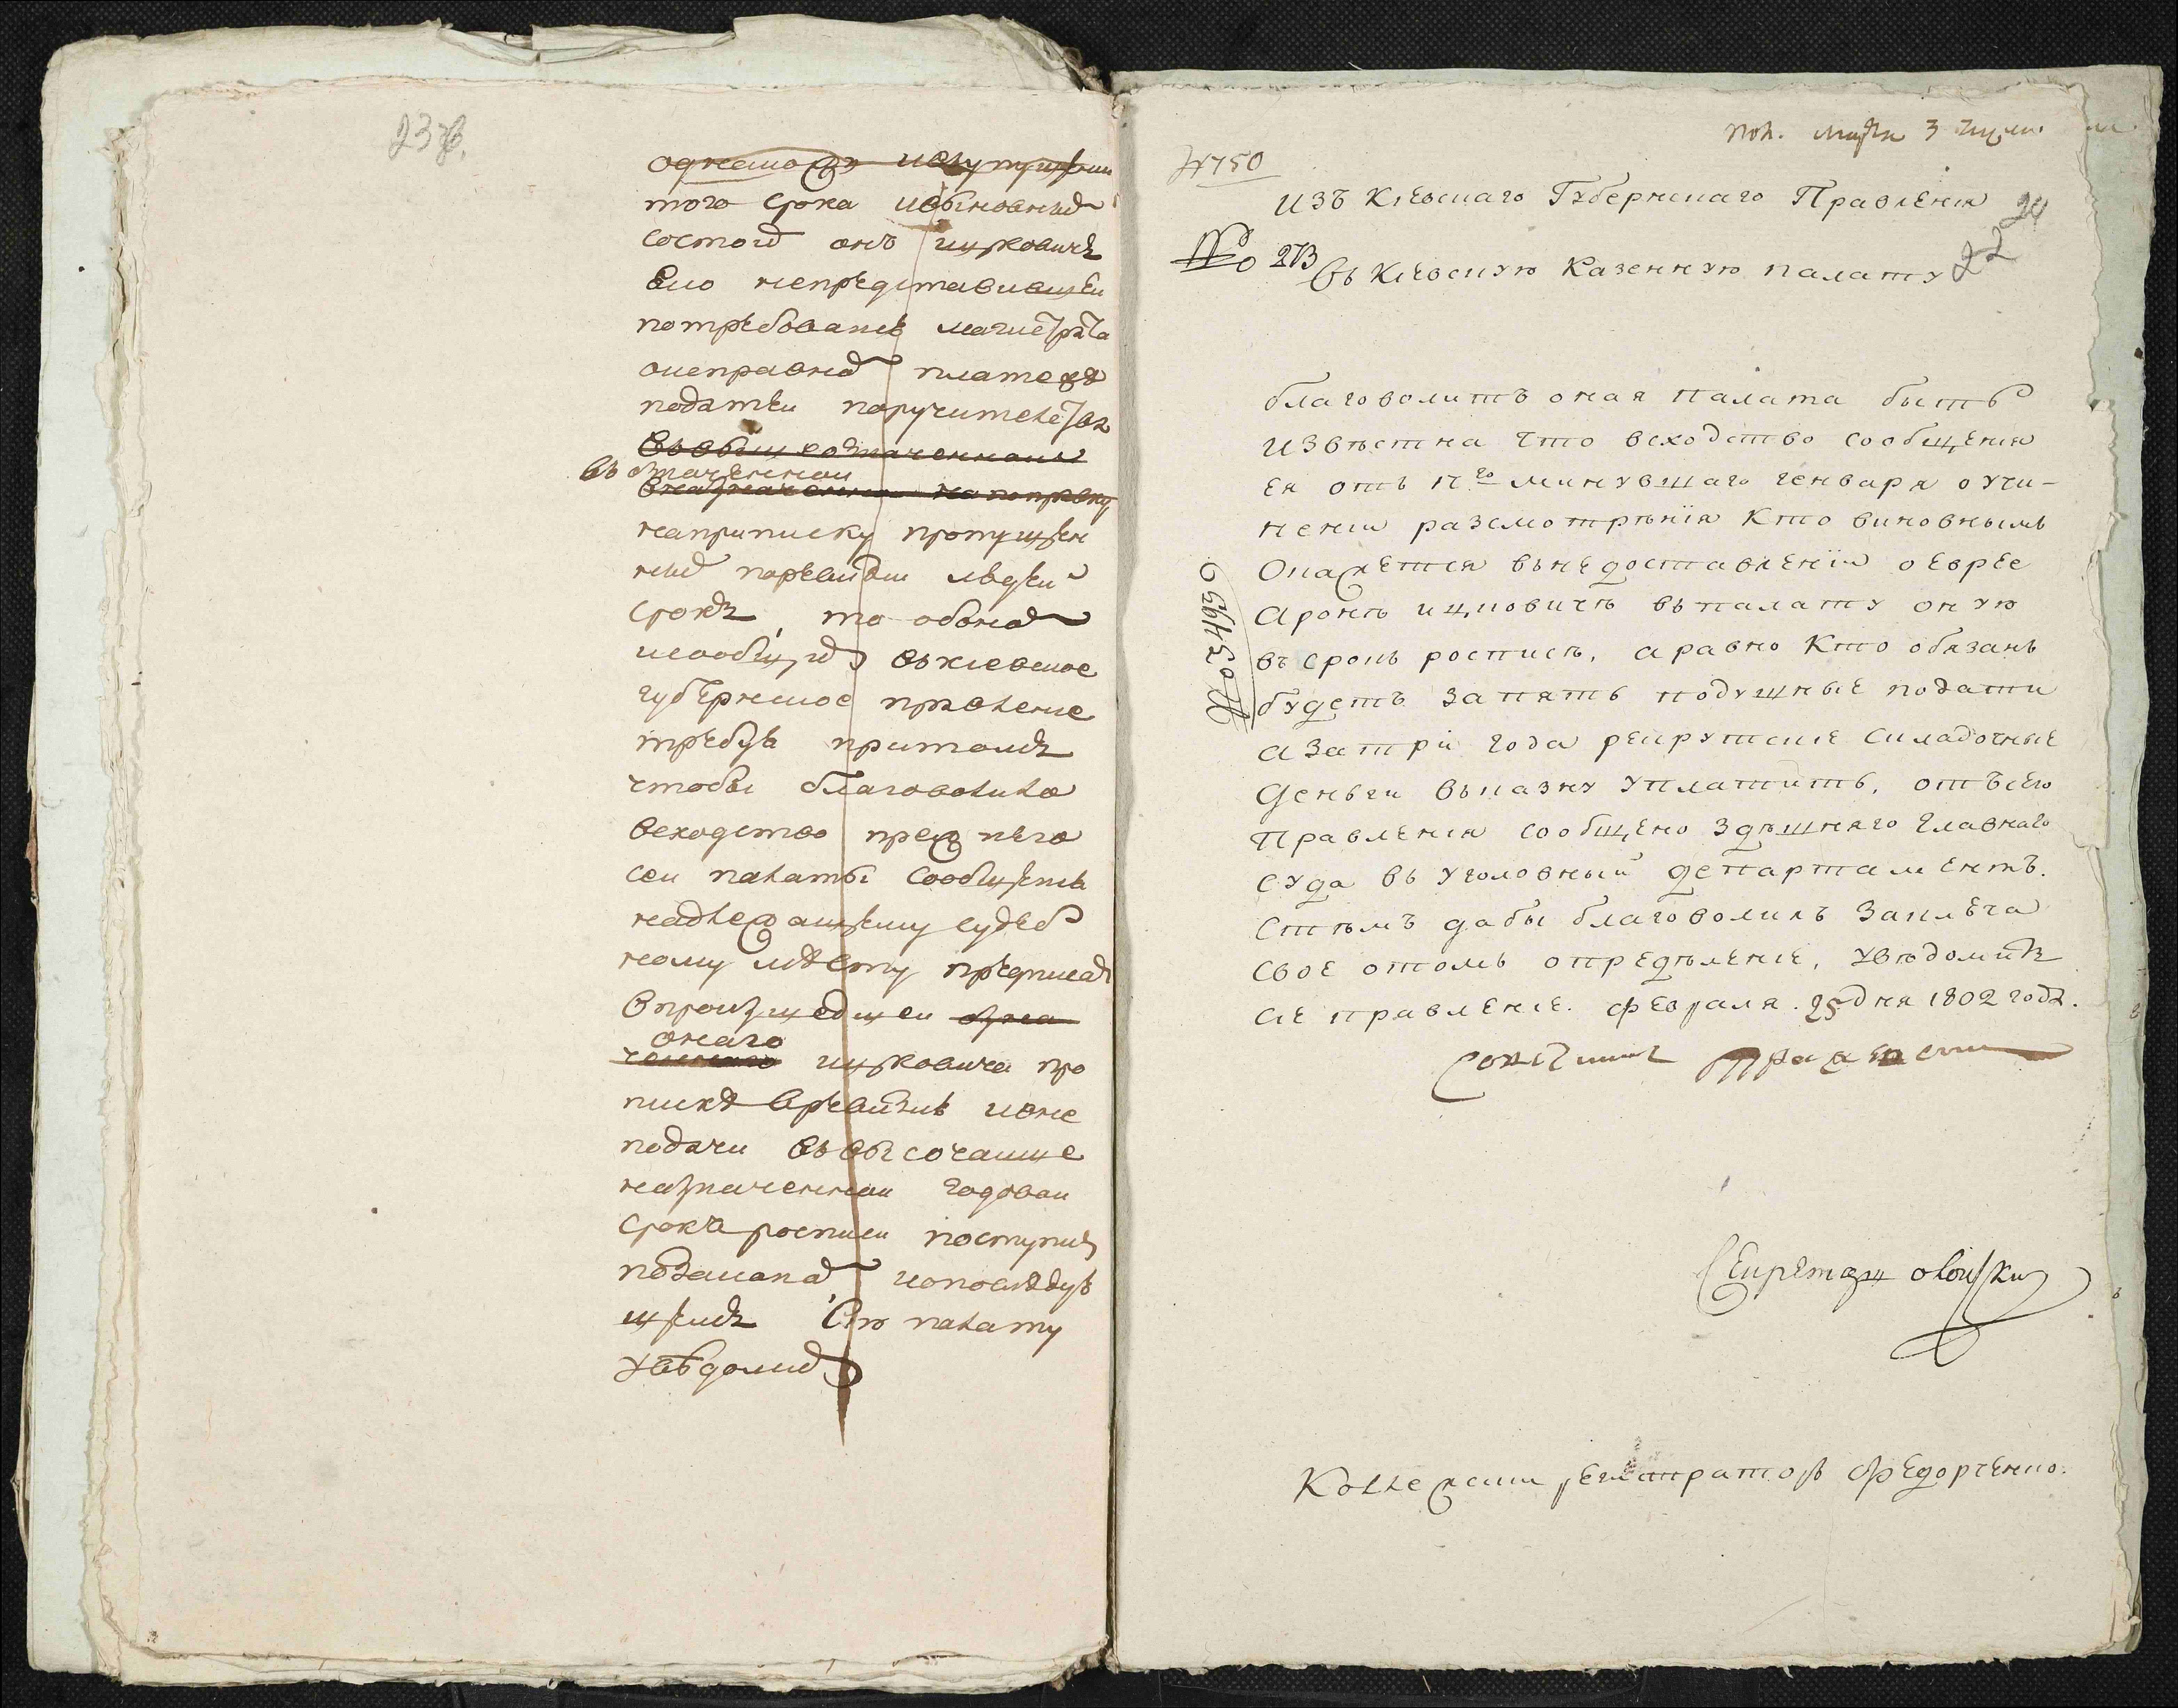 23 об.
того срока и обыновнымъ
состоитъ онъ ицковичъ
ею непредставившей
потребованию магистрата
оисправномъ платежѣ
податей поручительства
въ означенной
наприписку пропущен
ныхъ поревизіи людей
срокъ, то обономъ
исообщить вкиевское
губернское правление
требуя притомъ
чтобы благоволило
всходство прежняго
сей палаты сообщения
надлежащему судеб
ному мѣсту предписать
впроизшедшей
онаго
ицковича про
пискѣ вревизию ионе
подачи въвысочайше
назначенной годовой
срокъ росписи поступить
позаконамъ ипослѣдую
щемъ Сию палату
увѣдомить
пол. марта 3
№ 750
24
22
изъ Киевскаго Губернскаго Правления
№ 273
въ Киевскую Казенную палату
благоволитъ оная палата быть
извѣстна что всходство сообщения
ея отъ 17го минувшаго генваря оучи-
нении разсмотрѣнія кто виновнымъ
Окажется внедоставленіи оеврее
Аронѣ ицковичѣ впалату оную
въ срокъ росписѣ, аравно кто обязанъ
будетъ запять подушные подати
азатри года рекрутские складочные
деньги вказну уплатить, отъсего
Правления сообщено здѣшняго главнаго
суда въ уголовный департаментъ.
Стѣмъ дабы благоволилъ заключа
свое отомъ опредѣление, увѣдомить
сие правление. февраля. 25 дня 1802 годъ.
Совѣтникъ
Секретарь
Коллежский регистраторъ Федорченко.